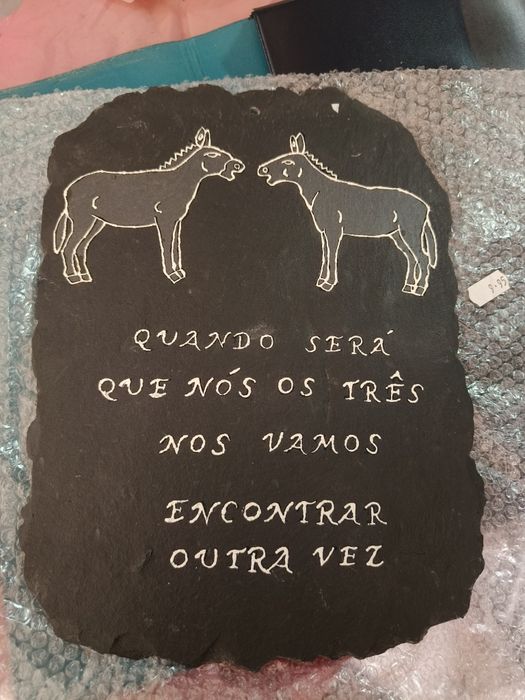 QUANDO SERÁ
QUE NÓS OS TRÊS
NOS VAMOS
ENCONTRAR
OUTRA VEZ